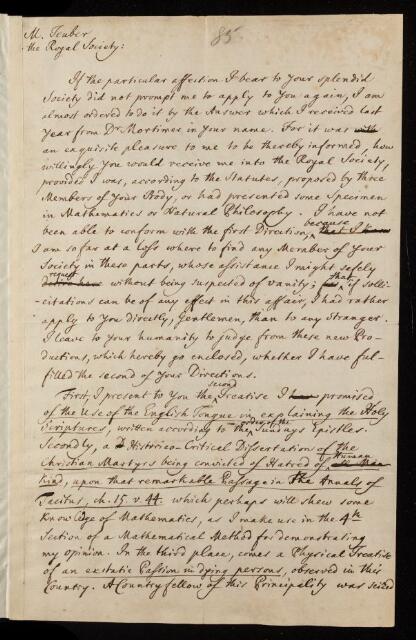 M. Teuber
85.
the Royal Society:
If the particular affection I bear to your splendid
Society did not prompt me to apply to you again, I am
almost ordered to do it by the Answer which I received last
year from Dr. Mortimer in your name. For it was with
an exquisite pleasure to me to be thereby informed, how
willingly you would receive me into the Royal Society,
provided I was, according to the Statutes, proposed by three
Members of your Body, or had presented some Specimen
in Mathematics or Natural Philosophy. I have not
because
been able to conform with the first Direction, that I
I am so far at a loss where to find any Member of your
Society in these parts, whose assistance I might safely
without being suspected of vanity; that if solli-
citations can be of any effect in this affair, I had rather
apply to you directly, Gentlemen, than to any stranger.
I leave to your humanity to judge from these new Pro-
ductions, which hereby go enclosed, whether I have ful-
filled the second of your Directions.
second
First, I present to you the Treatise I promised
of the Use of the English Tongue in explaining the Holy
Scriptures, written according to the Sundays Epistles.
Secondly, a Historico-Critical Dissertation of the
Christian Martyrs being convicted of Hatred of Human
Kind, upon that remarkable Passage in the Annals of
Tacitus, ch. 15. v. 44. which perhaps will shew some
Knowledge of Mathematics, as I make use in the 4th
Section of a Mathematical Method for demonstrating
my opinion. In the third place, comes a Physical Treatise
of an exstatic Passion in dying persons, observed in this
Country. A Country fellow of this Principality was seized